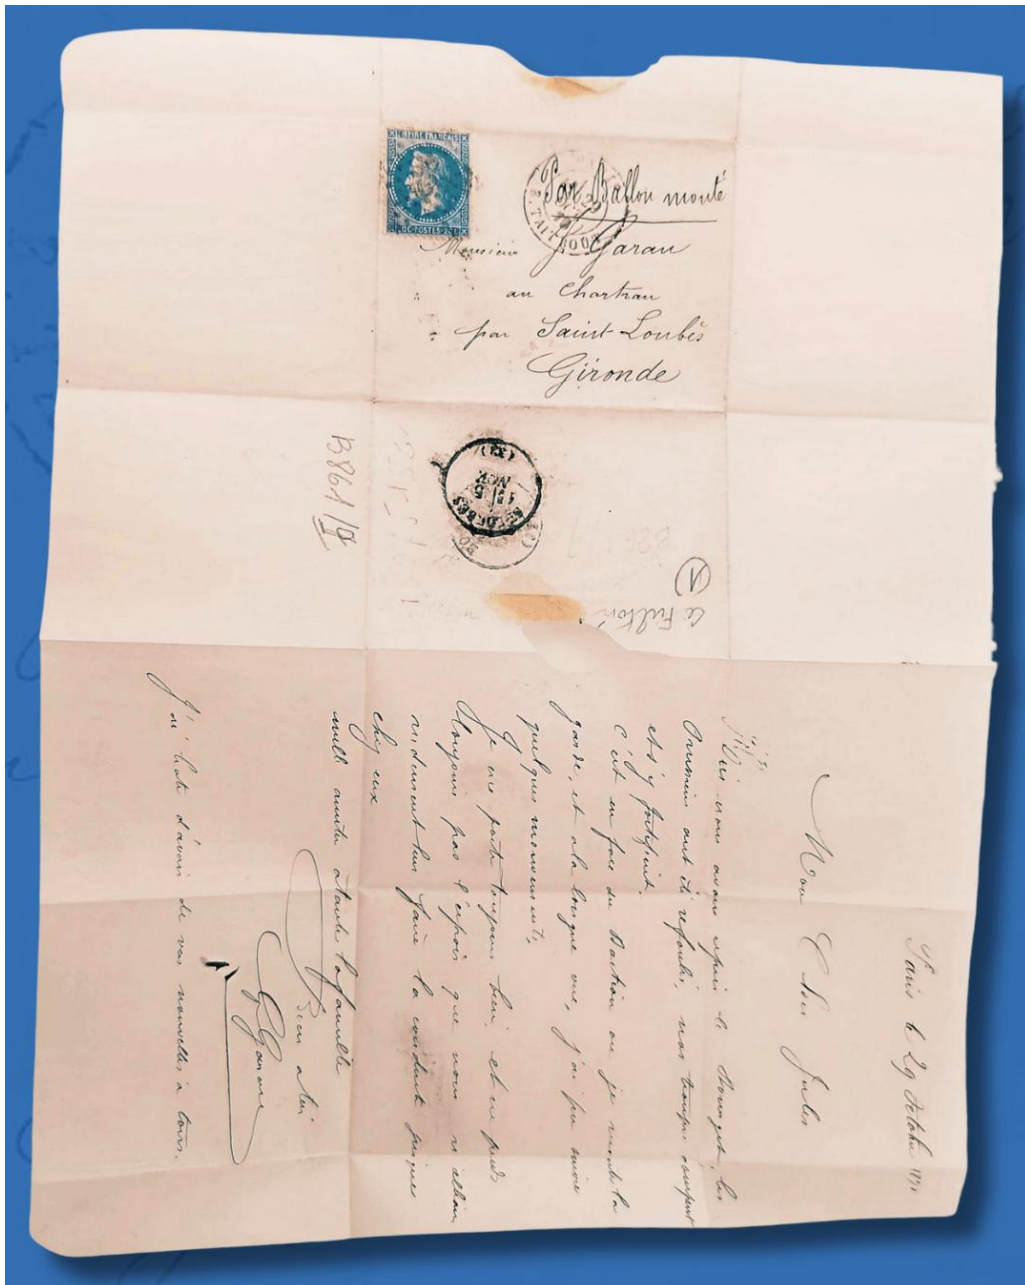 EMPIRE FRANÇAIS
Par Ballon monté
TAITBOUT
Monsieur J. Garau
au Chartran
par Saint-Loubès
Gironde
B861/9
(33)
5
NOV
ST LOUBES
1
Le Fulton
Paris le 29 Octobre 1870
Mon Cher Jules
nous avons repris le Bourget, les
Prussiens ont été refoulés, nos troupes occupent
et s'y fortifient.
C'est en face du Bastion ou je monte la
garde, et a la longue vue, j'ai pu suivre
quelques mouvements,
Je me porte toujours bien, et ne perds
toujours pas l'espoir que nous n'allions
leur faire la conduite jusques
chez eux
mille amitiés à toute ta famille
Bien a toi
G Garau
J'ai hate d'avoir de vos nouvelles à tous.